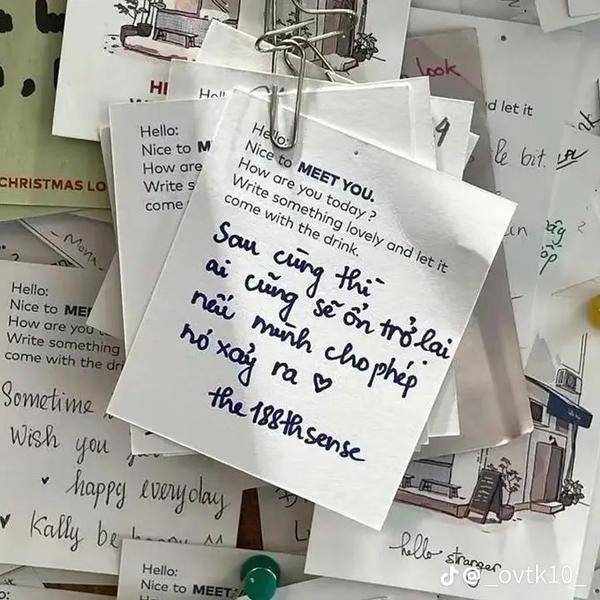 look
d let it
le bit.
HI
Hello:
Nice to M
How are
Write s
come
Hello:
Nice to MEET YOU.
How are you today ?
Write something lovely and let it
come with the drink.
Sau cùng thì
ai cũng sẽ ổn trở lại
nếu mình cho phép
nó xảy ra ♡
the 188thsense
CHRISTMAS LO
Hello:
Nice to MEE
How are you
Write something
come with the dri
Sometime
Wish you
happy everyday
Kally be happy
hello stranger
Hello:
Nice to MEET
@_ovtk10_